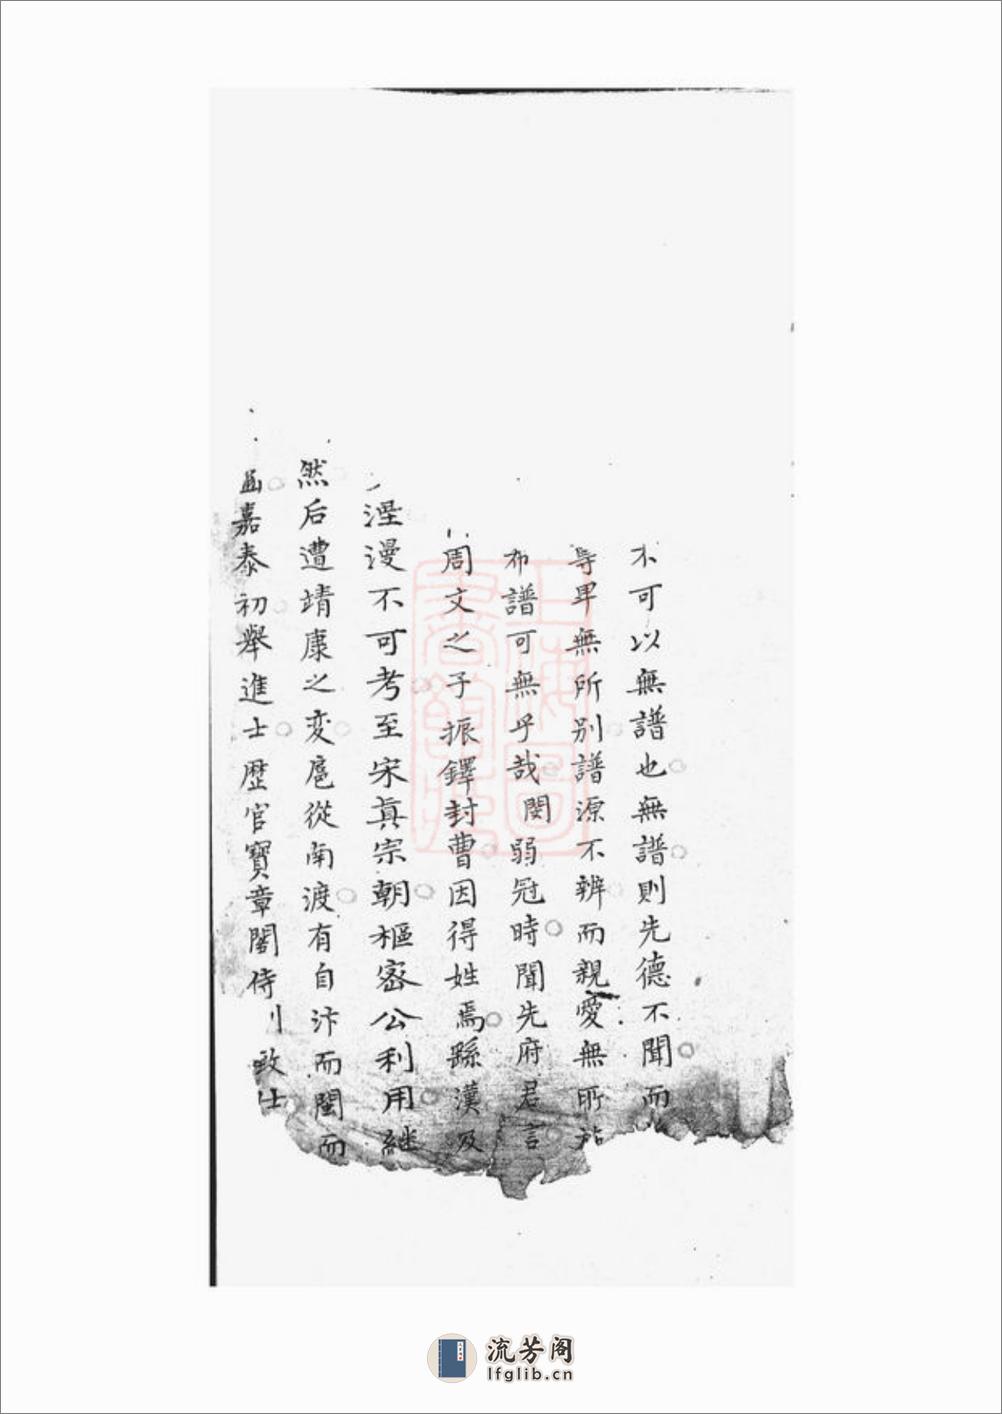 不可以無譜也無譜則先德不聞而
卑無所別譜源不辨而親愛無所
布譜可無乎哉閔弱冠時聞先府君言
周文之子振鐸封曹因得姓焉繇漢及
湮漫不可考至宋真宗朝樞密公利用継
然后遭靖康之変扈從南渡有自汴而閩而
嘉泰初舉進士歴官寳章閣侍致仕
上海圖書館藏
流芳阁
lfglib.cn